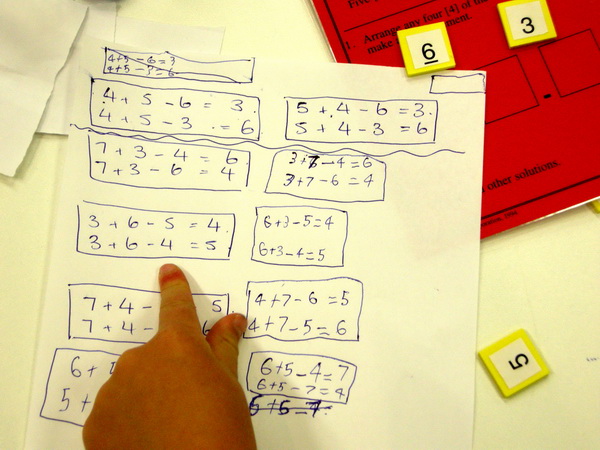 Five
1. Arrange any four [4] of the
make
ment.
6
3
-
other solutions.
5
4+5-6=3
4+5-3=6
4+5-6=3.
4+5-3.=6
5+4-6=3.
5+4-3=6
7+3-4=6
7+3-6=4
3+7-4=6
3+7-6=4
3+6-5=4.
3+6-4=5
6+3-5=4
6+3-4=5
7+4- 5
7+4- 6
4+7-6=5
4+7-5=6
6+5
5+
6+5-4=7
6+5-7=4